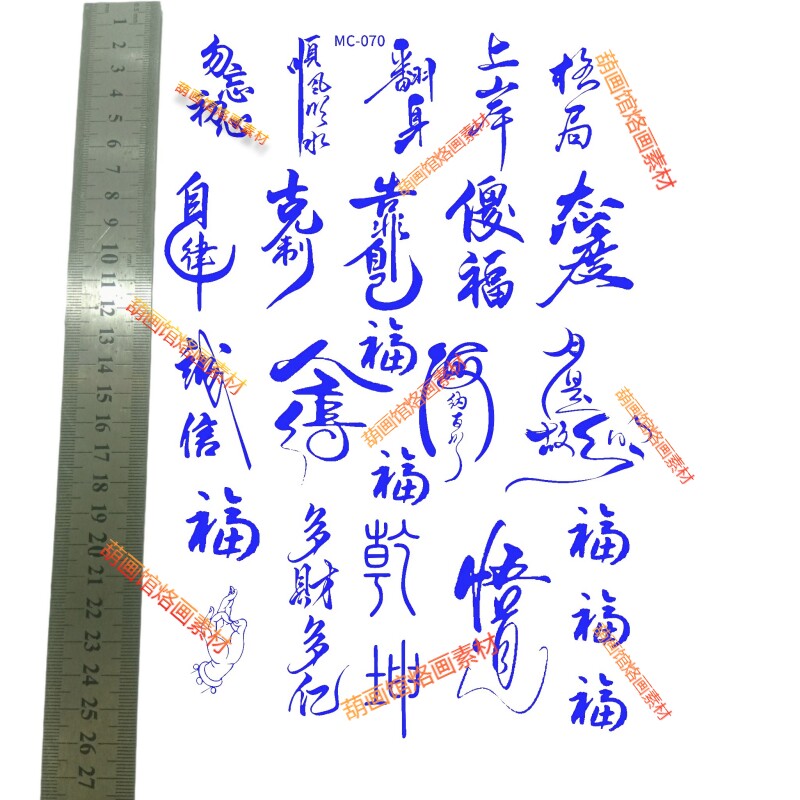 MC-070
勿忘初心
順風順水
翻身
上岸
格局
自律
克制
靠自己
傻福
态度
誠信
舍得
福
海纳百川
月是故乡明
福
福
多財多亿
乾坤
悟道
福
福
福
葫画馆烙画素材
葫画馆烙画素材
葫画馆烙画素材
葫画馆烙画素材
葫画馆烙画素材
葫画馆烙画素材
葫画馆烙画素材
葫画馆烙画素材
葫画馆烙画素材
1
2
3
4
5
6
7
8
9
10
11
12
13
14
15
16
17
18
19
20
21
22
23
24
25
26
27